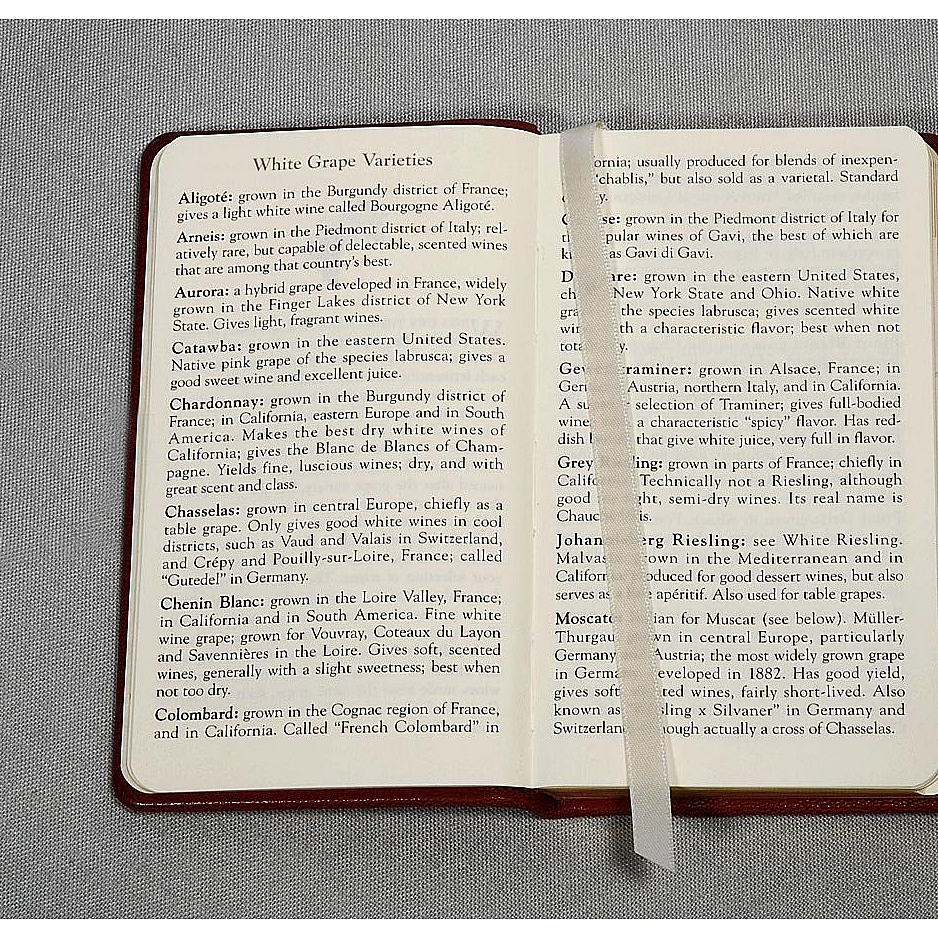 White Grape Varieties
Aligoté: grown in the Burgundy district of France;
gives a light white wine called Bourgogne Aligoté.
Arneis: grown in the Piedmont district of Italy; rel-
atively rare, but capable of delectable, scented wines
that are among that country's best.
Aurora: a hybrid grape developed in France, widely
grown in the Finger Lakes district of New York
State. Gives light, fragrant wines.
Catawba: grown in the eastern United States.
Native pink grape of the species labrusca; gives a
good sweet wine and excellent juice.
Chardonnay: grown in the Burgundy district of
France; in California, eastern Europe and in South
America. Makes the best dry white wines of
California; gives the Blanc de Blancs of Cham-
pagne. Yields fine, luscious wines; dry, and with
great scent and class.
Chasselas: grown in central Europe, chiefly as a
table grape. Only gives good white wines in cool
districts, such as Vaud and Valais in Switzerland,
and Crépy and Pouilly-sur-Loire, France; called
"Gutedel" in Germany.
Chenin Blanc: grown in the Loire Valley, France;
in California and in South America. Fine white
wine grape; grown for Vouvray, Coteaux du Layon
and Savennières in the Loire. Gives soft, scented
wines, generally with a slight sweetness; best when
not too dry.
Colombard: grown in the Cognac region of France,
and in California. Called "French Colombard" in
usually produced for blends of inexpen-
"chablis," but also sold as a varietal. Standard
grown in the Piedmont district of Italy for
wines of Gavi, the best of which are
as Gavi di Gavi.
grown in the eastern United States,
New York State and Ohio. Native white
the species labrusca; gives scented white
a characteristic flavor; best when not
grown in Alsace, France; in
Austria, northern Italy, and in California.
A selection of Traminer; gives full-bodied
a characteristic "spicy" flavor. Has red-
dish that give white juice, very full in flavor.
Grey grown in parts of France; chiefly in
Technically not a Riesling, although
good semi-dry wines. Its real name is
Riesling: see White Riesling.
in the Mediterranean and in
for good dessert wines, but also
serves as apéritif. Also used for table grapes.
for Muscat (see below). Müller-
in central Europe, particularly
Germany Austria; the most widely grown grape
in developed in 1882. Has good yield,
gives wines, fairly short-lived. Also
known as x Silvaner" in Germany and
actually a cross of Chasselas.